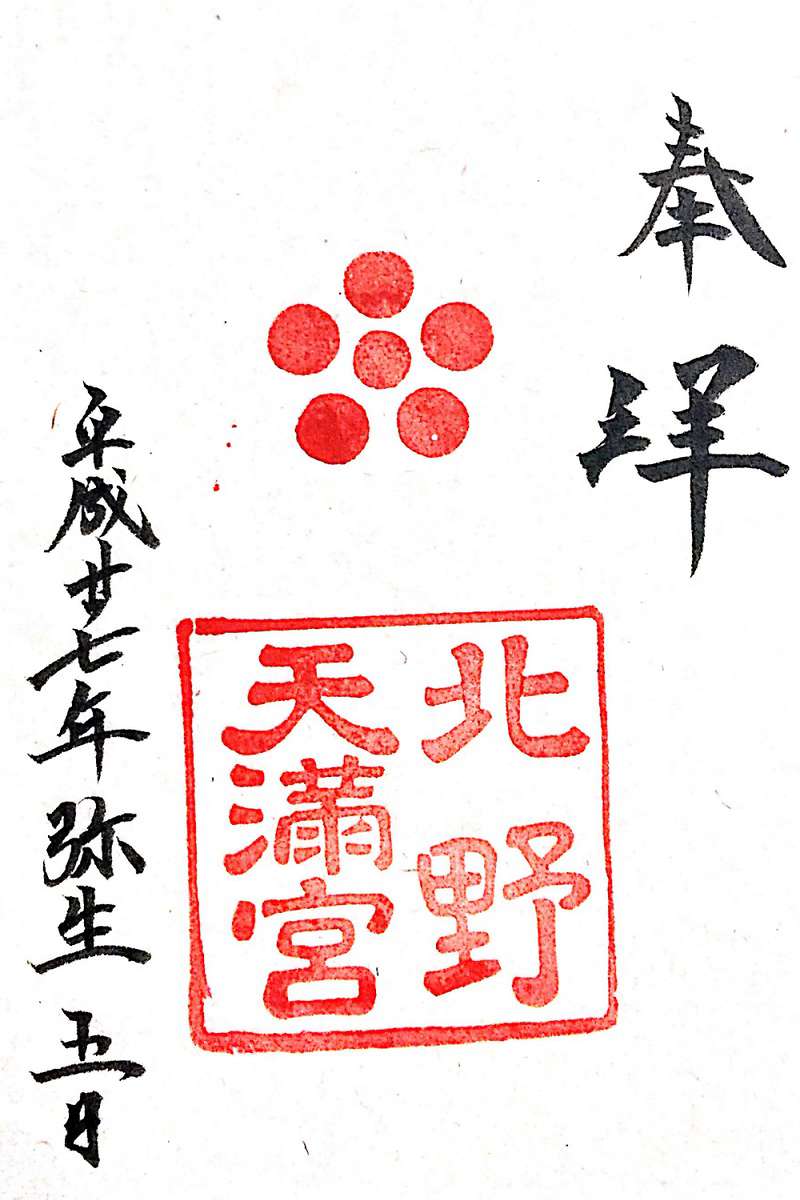 奉拝
北野
天満宮
平成廿七年弥生五日